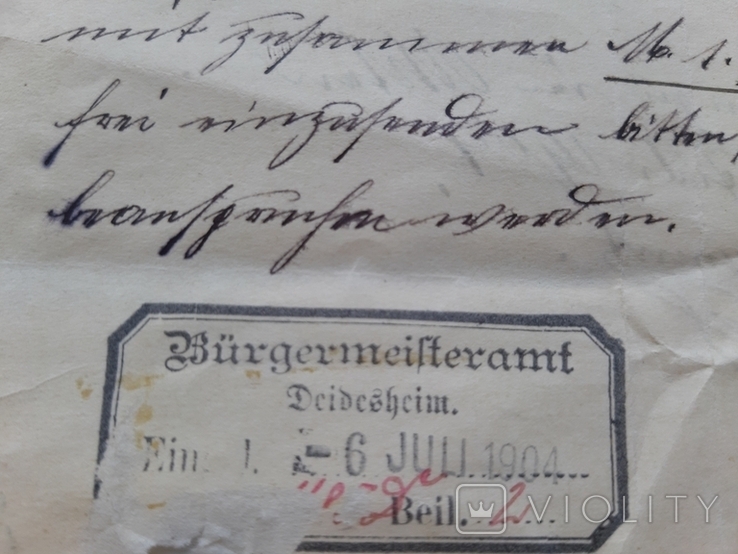 mit zusammen M. 1.
frei einzusenden bitten,
beanspruchen werden.
Bürgermeisteramt
Deidesheim.
Einl. -6 JULI 1904
Beil. 2
VIOLITY